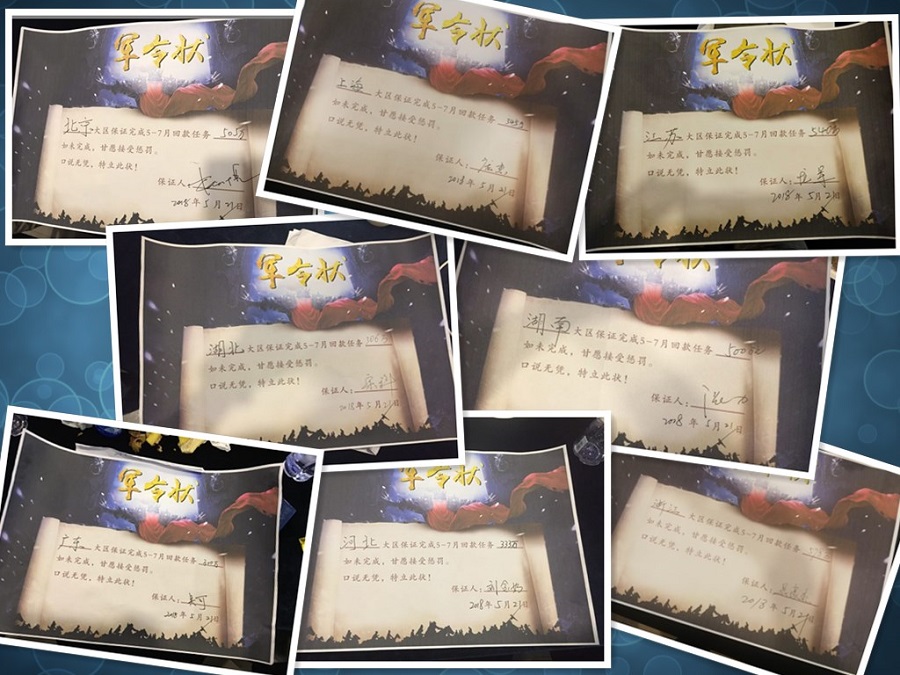 军令状
北京大区保证完成5-7月回款任务505万
如未完成，甘愿接受惩罚。
口说无凭，特立此状！
保证人：
2018年5月23日
军令状
上海大区保证完成5-7月回款任务
如未完成，甘愿接受惩罚。
口说无凭，特立此状！
保证人：
2018年5月23日
军令状
江苏大区保证完成5-7月回款任务
如未完成，甘愿接受惩罚。
口说无凭，特立此状！
保证人：
2018年5月23日
军令状
湖北大区保证完成5-7月回款任务
如未完成，甘愿接受惩罚。
口说无凭，特立此状！
保证人：
2018年5月23日
湖南大区保证完成5-7月回款任务
如未完成，甘愿接受惩罚。
口说无凭，特立此状！
保证人：
2018年5月23日
军令状
广东大区保证完成5-7月回款任务
如未完成，甘愿接受惩罚。
口说无凭，特立此状！
保证人：
2018年5月23日
军令状
河北大区保证完成5-7月回款任务335万
如未完成，甘愿接受惩罚。
口说无凭，特立此状！
保证人：
2018年5月23日
浙江大区保证完成5-7月回款任务
如未完成，甘愿接受惩罚。
口说无凭，特立此状！
保证人：
2018年5月23日